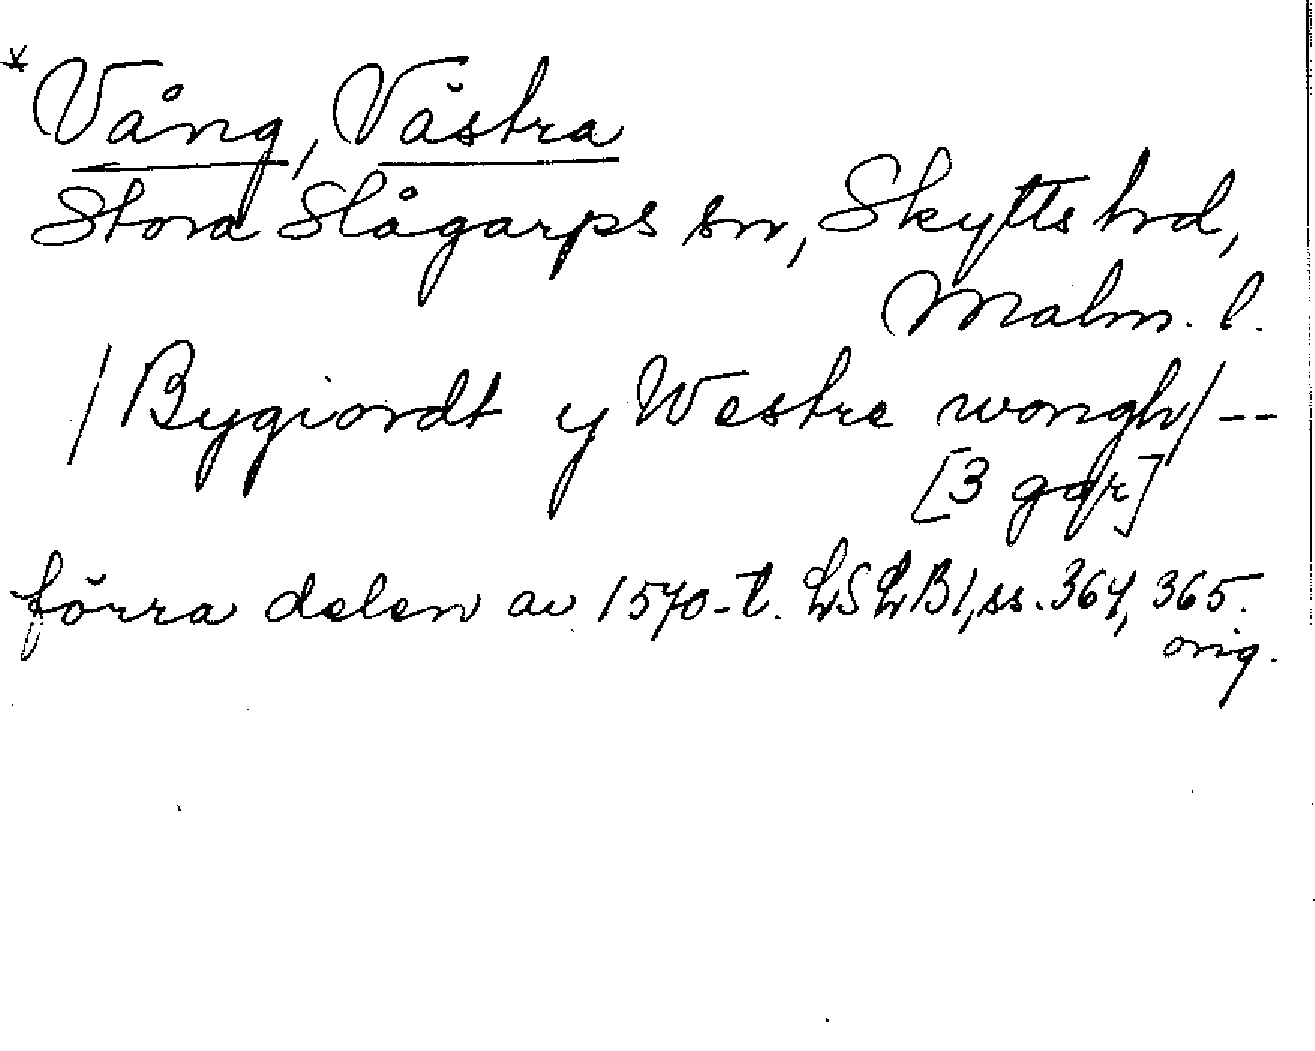 * Vång, Västra
Stora Slågarps sn, Skytts hd,
Malm. l.
/ Bygiordt y Westre wongh / --
[3 ggr]
förra delen av 1570-t. LSLB1, ss. 364, 365.
orig.